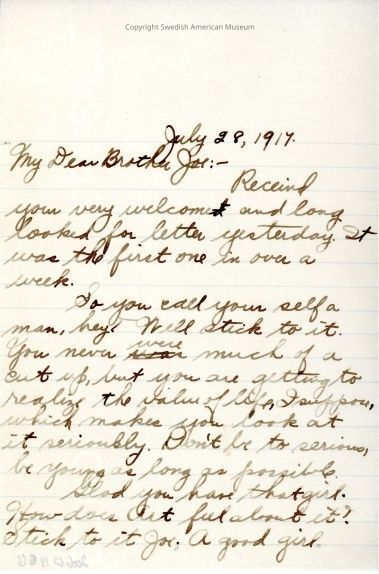 Copyright Swedish American Museum
July 28, 1917.
My Dear Brother Joe:-
Receivd
your very welcomet and long
looked for letter yesterday. It
was the first one in over a
week.
So you call your self a
man, hey! Well stick to it.
You never were much of a
cut up, but you are getting to
realize the value of life, I suppose,
which makes you look at
it seriously. Don't be to serious,
be young as long as possible.
Glad you have that girl.
How does Art feel about it?
Stick to it Joe, A good girl